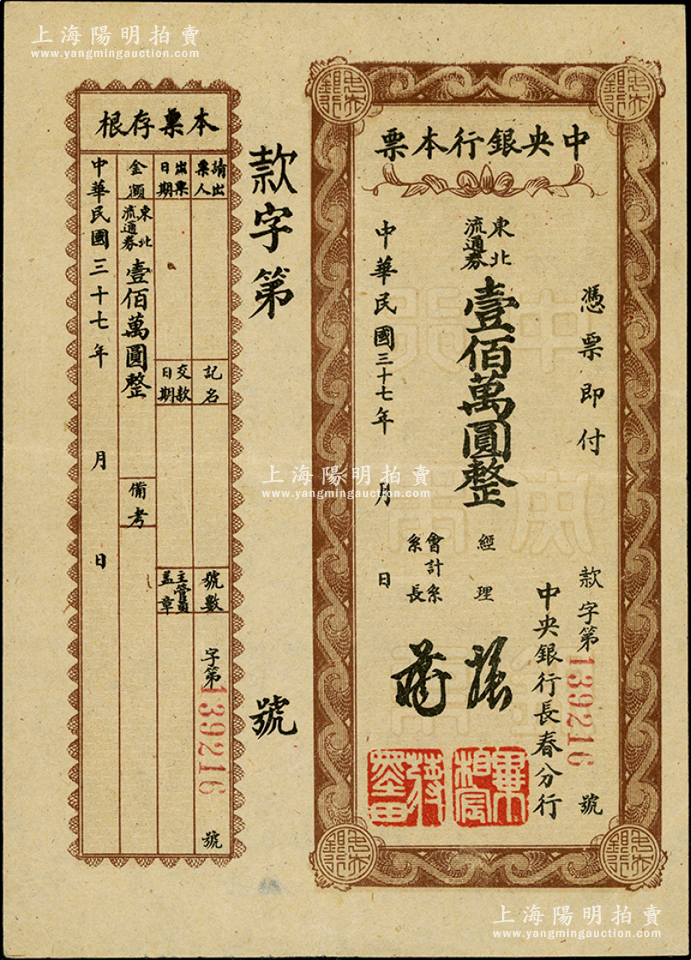 上海陽明拍賣
www.yangmingauction.com
中央銀行本票
憑票即付
款字第139216號
中央銀行長春分行
東北
流通券
壹佰萬圓整
經理
會計系
系長
中華民國三十七年 月 日
款字第 號
本票存根
請出
票人
出票
日期
記名
交款
日期
號數
字第139216號
主管員
蓋章
金額
東北
流通券
壹佰萬圓整
備考
中華民國三十七年 月 日
上海陽明拍賣
www.yangmingauction.com
上海陽明拍賣
www.yangmingauction.com